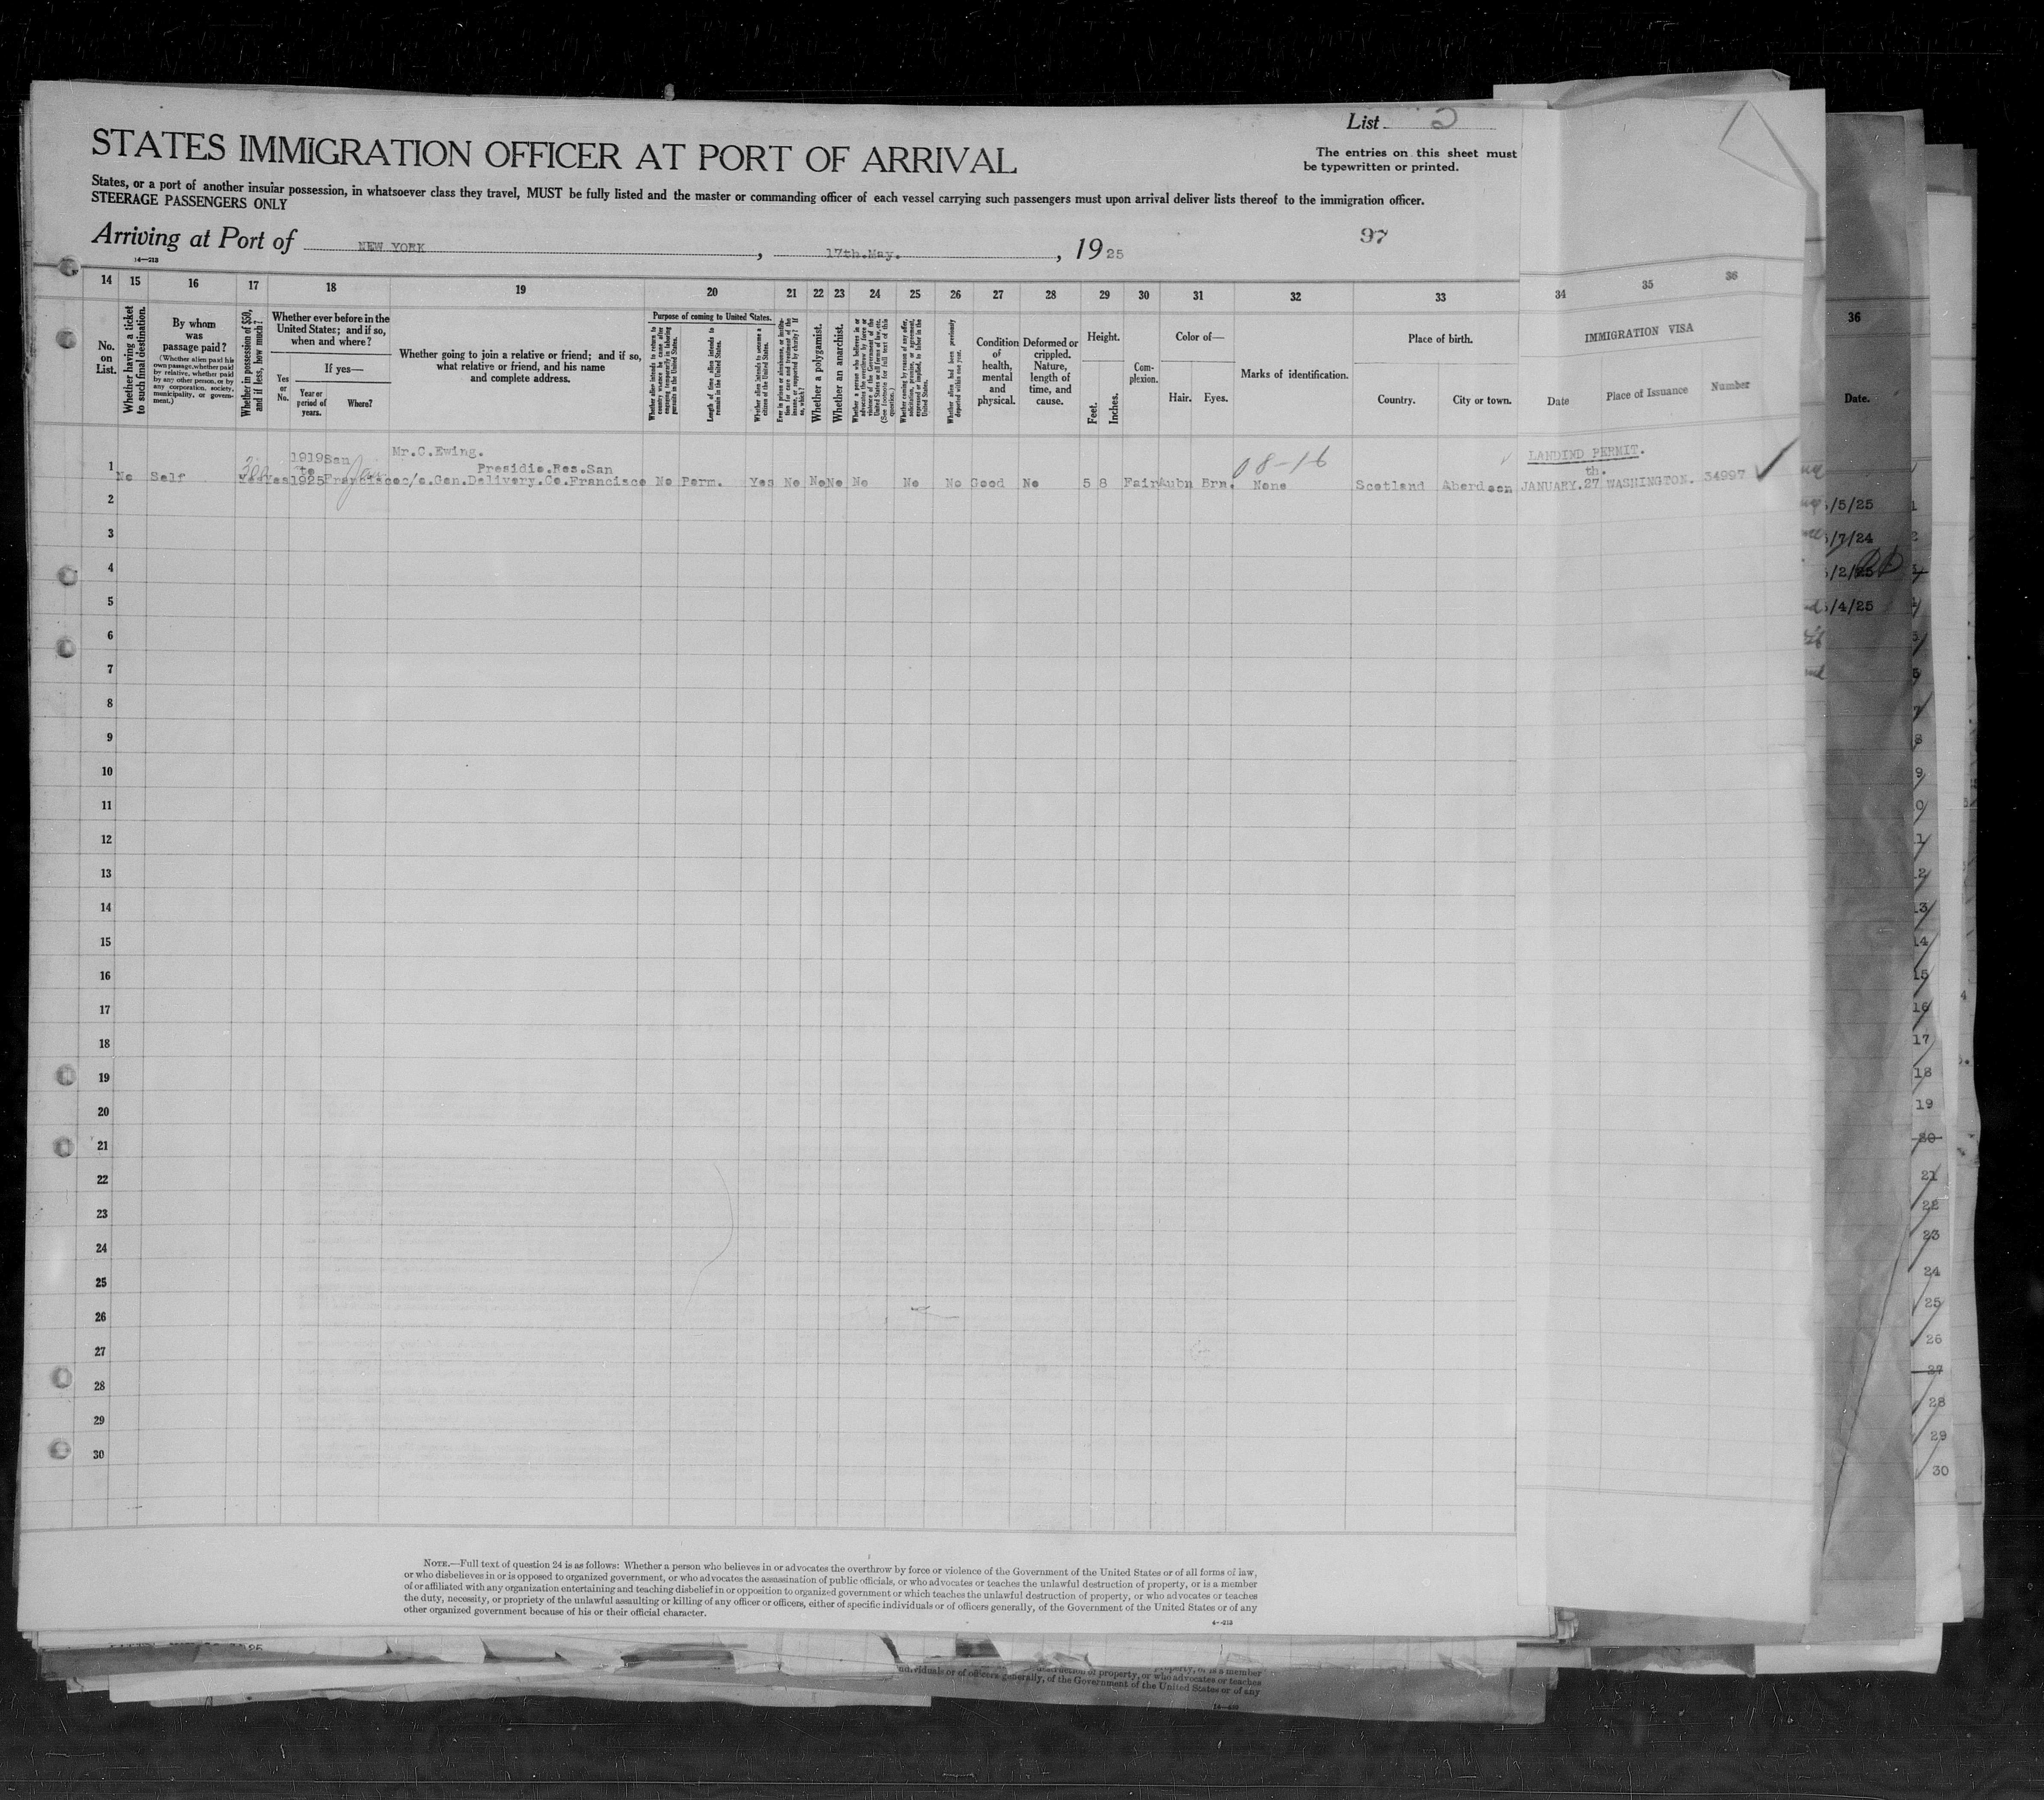 List 2
STATES IMMIGRATION OFFICER AT PORT OF ARRIVAL
The entries on this sheet must
be typewritten or printed.
States, or a port of another insular possession, in whatsoever class they travel, MUST be fully listed and the master or commanding officer of each vessel carrying such passengers must upon arrival deliver lists thereof to the immigration officer.
STEERAGE PASSENGERS ONLY
Arriving at Port of NEW YORK, 17th.May., 1925
97
14—213
14 15 16 17 18 19 20 21 22 23 24 25 26 27 28 29 30 31 32 33 34 35 36
No. on List.
Whether having a ticket to such final destination.
By whom was passage paid?
(Whether alien paid his own passage, whether paid by relative, whether paid by any other person, or by any corporation, society, municipality, or government.)
Whether in possession of $50, and if less, how much?
Whether ever before in the United States; and if so, when and where?
Yes or No.
If yes—
Year or period of years.
Where?
Whether going to join a relative or friend; and if so, what relative or friend, and his name and complete address.
Purpose of coming to United States.
Whether alien intends to return to country whence he came after engaging temporarily in laboring pursuits in the United States.
Length of time alien intends to remain in the United States.
Whether alien intends to become a citizen of the United States.
Ever in prison or almshouse, or institution for care and treatment of the insane, or supported by charity? If so, which?
Whether a polygamist.
Whether an anarchist.
Whether a person who believes in or advocates the overthrow by force or violence of the Government of the United States or all forms of law, etc. (See footnote for full text of this question.)
Whether coming by reason of any offer, solicitation, promise, or agreement, expressed or implied, to labor in the United States.
Whether alien had been previously deported within one year.
Condition of health, mental and physical.
Deformed or crippled. Nature, length of time, and cause.
Height.
Feet. Inches.
Complexion.
Color of—
Hair. Eyes.
Marks of identification.
Place of birth.
Country. City or town.
IMMIGRATION VISA
Date Place of Issuance Number
36
Date.
1 No Self Yes Yes 1919 to 1925 San Francisco
Mr.C.Ewing.
Presidio.Res.San
c/o.Gen.Delivery.Co.Francisco No Perm. Yes No No No No No No Good No 5 8 Fair Aubn Brn. None Scotland Aberdeen
08-16
LANDIND PERMIT.
th.
JANUARY.27 WASHINGTON. 34997
2
3
4
5
6
7
8
9
10
11
12
13
14
15
16
17
18
19
20
21
22
23
24
25
26
27
28
29
30
/5/25
/7/24
/2/25
/4/25
NOTE.—Full text of question 24 is as follows: Whether a person who believes in or advocates the overthrow by force or violence of the Government of the United States or of all forms of law,
or who disbelieves in or is opposed to organized government, or who advocates the assassination of public officials, or who advocates or teaches the unlawful destruction of property, or is a member
of or affiliated with any organization entertaining and teaching disbelief in or opposition to organized government or which teaches the unlawful destruction of property, or who advocates or teaches
the duty, necessity, or propriety of the unlawful assaulting or killing of any officer or officers, either of specific individuals or of officers generally, of the Government of the United States or of any
other organized government because of his or their official character.
property, or is a member
of property, or who advocates or teaches
individuals or of officers generally, of the Government of the United States or of any